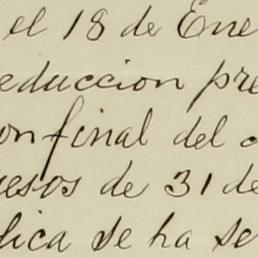 el 18 de Ene
educcion pre
on final del c
esos de 31 de
lica se ha se